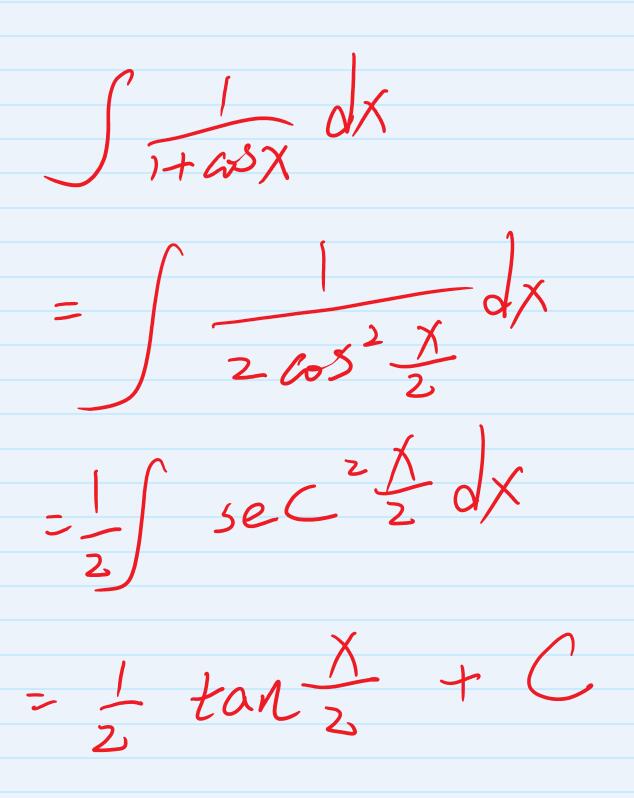 ∫ 1/(1+cosx) dx
= ∫ 1/(2 cos² x/2) dx
= 1/2 ∫ sec² x/2 dx
= 1/2 tan x/2 + C